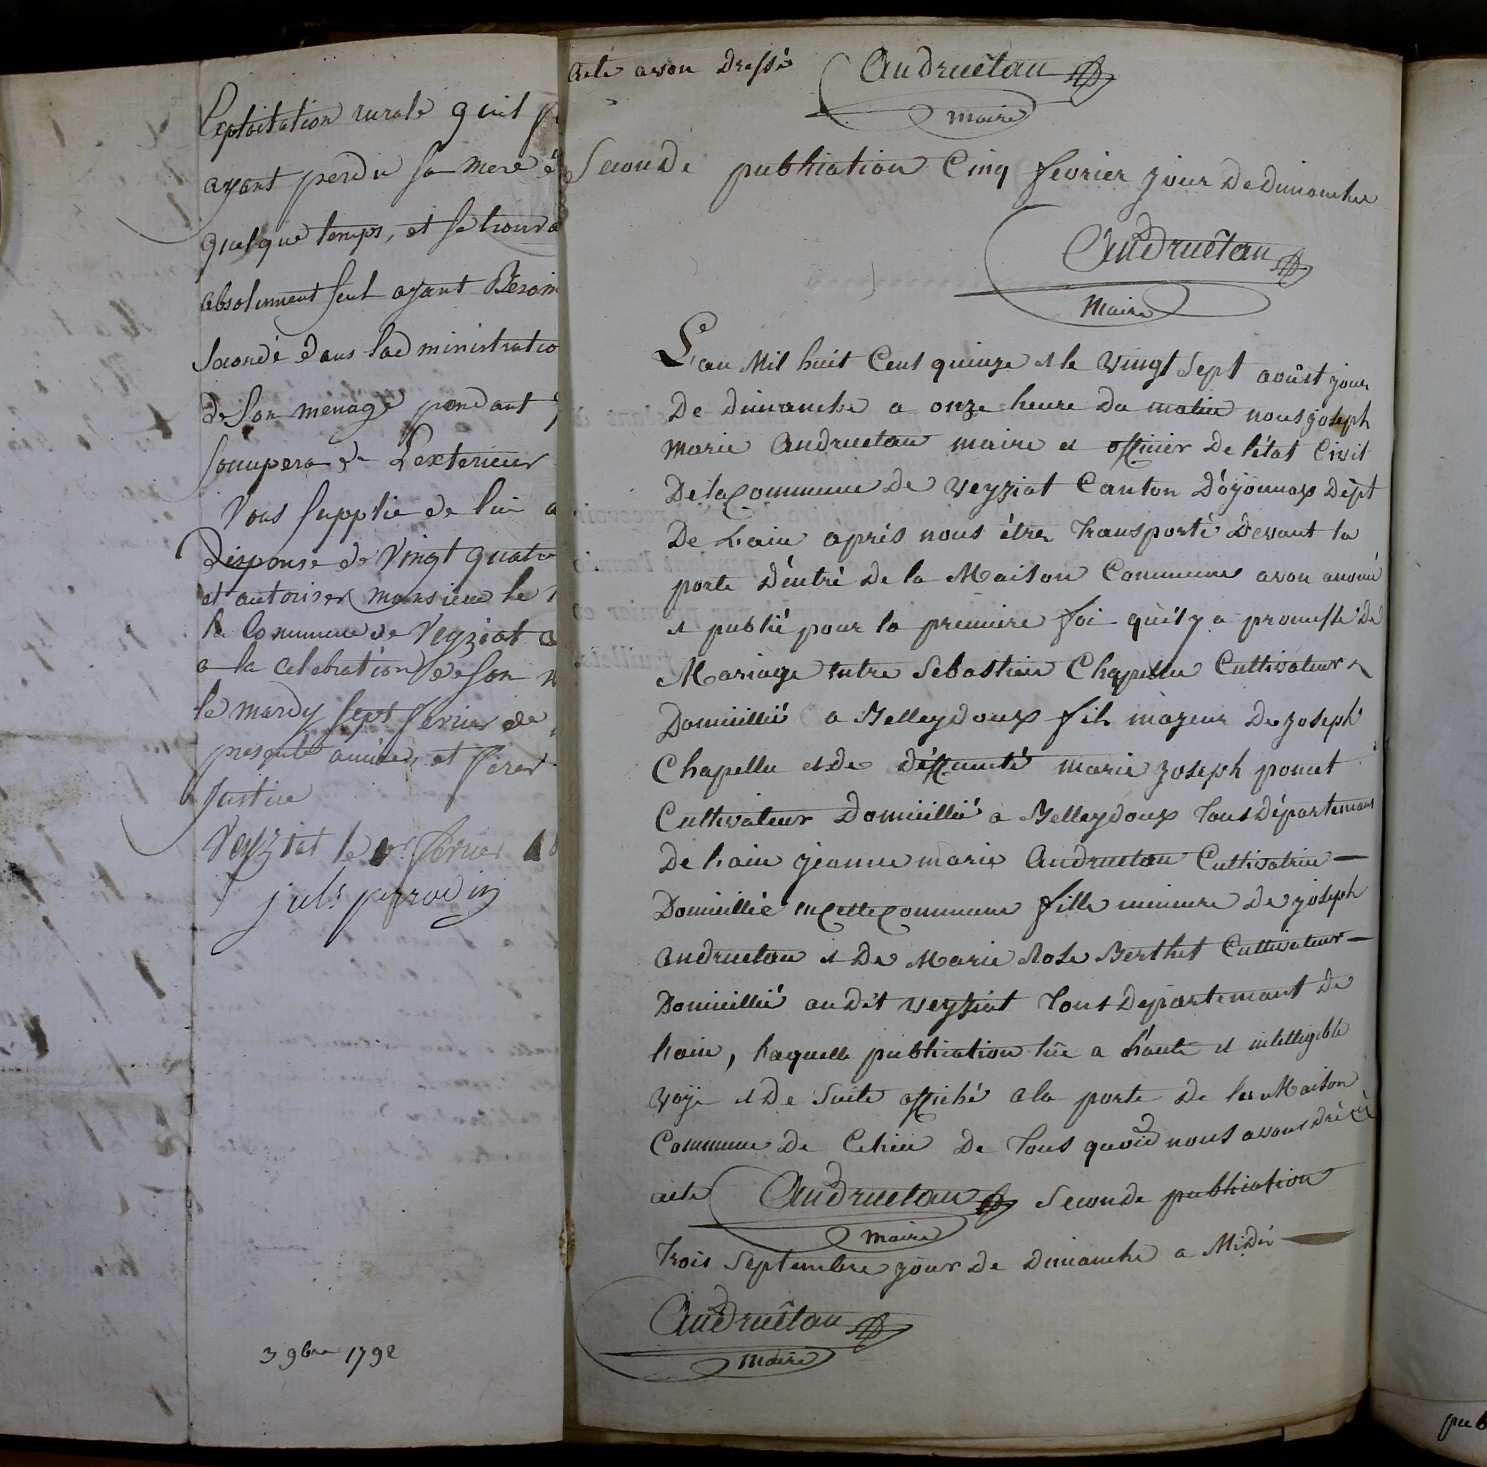 Exploitation rurale quil
ayant perdu sa mere
quelque temps, et se trouva
absolument seul ayant Besoin
secondé dans ladministratio
de son menage pendant
soccupera de Lexterieur
Vous supplie de lui
Dispense de Vingt quatre
et autoriser monsieur le
la Commune de Veyziat a
a la celebration de son
le mardy sept fevrier de
presente année, et ferez
justice
Veyziat le fevrier
jph perrodin
3 9bre 1792
acte avon dressé Andruétan
maire
Seconde publication Cinq fevrier jour de dimanche
Andruétan
Maire
L'an Mil huit Cent quinze et le vingt sept août jour
De dimanche a onze heure du matin nous joseph
marie andruetan maire et officier de l'état Civil
De la Commune de veyziat Canton d'oyonnax dépt
De Lain aprés nous étre transporté devant la
porte d'entré de la Maison Commune avon anoncé
et publié pour la premiere foi qu'il y a promesse de
Mariage entre Sebastien Chapellu Cultivateur
Domicillié a Belleydoux fils majeur de joseph
Chapellu et de déffunté marie joseph poncet
Cultivateur Domicillié a Belleydoux tous département
De Lain jeanne marie Andruetan Cultivatrice —
Domicillié en cette Commune fille mineure de joseph
andruetan et De Marie Rose Berthet Cultivateur —
Domicillié au dit veyziat tous departement de
Lain, Laquelle publication lüe a haute et intelligible
voye et De suite affiché a la porte de la Maison
Commune de Celieu De tous quoi nous avons drécé
acte Andruetan Seconde publication
maire
trois Septembre jour de dimanche a Midi —
Andruétan
maire
pub